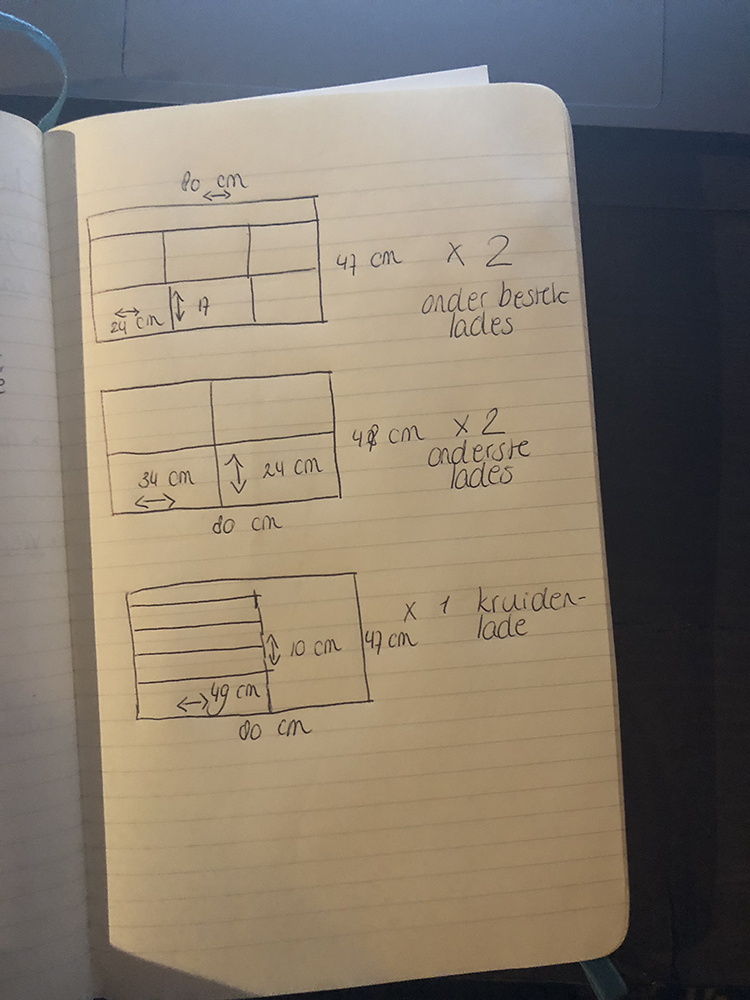 80 cm
47 cm x 2
onder bestek
lades
24 cm 17
48 cm x 2
onderste
lades
34 cm 24 cm
80 cm
x 1 kruiden-
lade
10 cm 47 cm
49 cm
80 cm